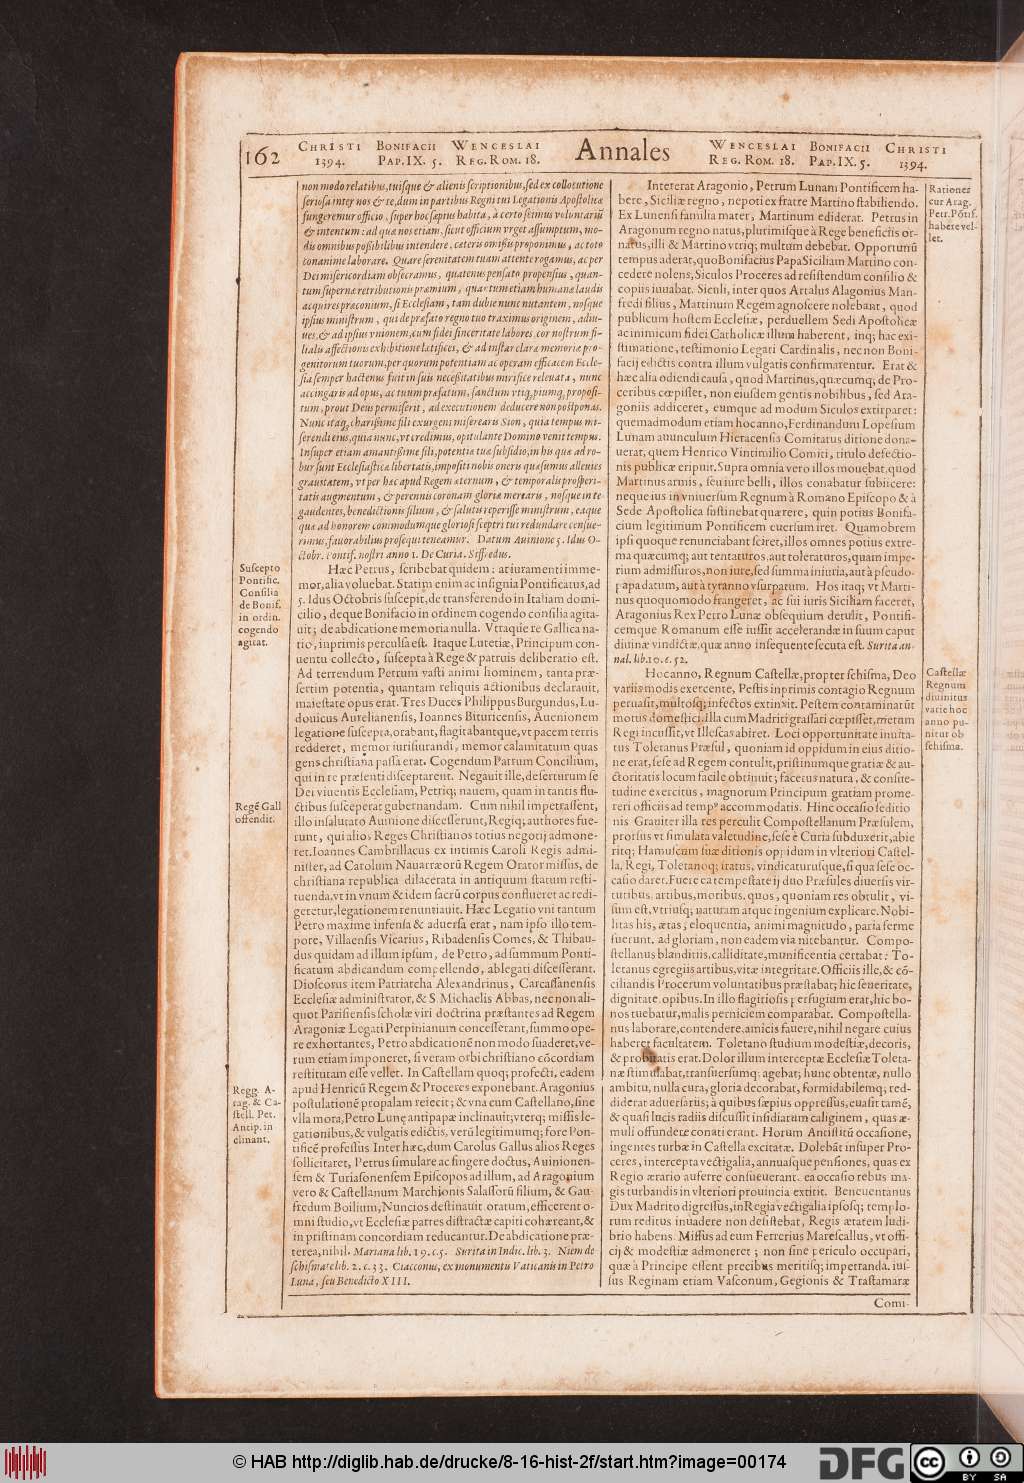 162 CHRISTI BONIFACII WENCESLAI Annales WENCESLAI BONIFACII CHRISTI
1394. PAP. IX. 5. REG. ROM. 18. REG. ROM. 18. PAP. IX. 5. 1394.
non modo relatibus, tuisque & alienis scriptionibus, sed ex collocutione
seriosa inter nos & te, dum in partibus Regni tui Legationis Apostolicæ
fungeremur officio, super hoc sæpius habita, à certo scimus voluntarium
& intentum: ad quæ nos etiam, sicut officium vrget assumptum, mo-
dis omnibus possibilibus intendere, ceteris omißis proponimus, ac toto
conamine laborare. Quare serenitatem tuam attente rogamus, ac per
Dei misericordiam obsecramus, quatenus pensato propensius, quan-
tum supernæ retributionis præmium, quantum etiam humanæ laudis
acquires præconium, si Ecclesiam, tam dubie nunc nutantem, nosque
ipsius ministrum, qui de præfato regno tuo traximus originem, adiu-
ues, & ad ipsius vnionem, cum fidei sinceritate labores. cor nostrum fi-
lialis affectionis exhibitione latifices, & ad instar claræ memoriæ pro-
genitorum tuorum, per quorum potentiam ac operam efficacem Eccle-
sia semper hactenus fuit in suis necessitatibus mirifice releuata, nunc
accingaris ad opus, ac tuum præfatum, sanctum vtiq; piumq; proposi-
tum, prout Deus permiserit, ad executionem deducere non postponas.
Nunc itaq; charissime fili exurgens miserearis Sion, quia tempus mi-
serendi eius, quia nunc, vt credimus, opitulante Domino venit tempus.
Insuper etiam amantissime fili, potentiæ tuæ subsidio, in his quæ ad ro-
bur sunt Ecclesiasticæ libertatis, impositi nobis oneris quæsumus allenies
grauitatem, vt per hæc apud Regem æternum, & temporalis prosperi-
tatis augmentum, & perennis coronam gloriæ merearis, nosque in te
gaudentes, benedictionis filium, & salutis reperisse ministrum, ea que
quæ ad honorem commodumque gloriosi sceptri tui redundare censue-
rimus, fauorabilius prosequi teneamur. Datum Auinione 5. Idus O-
ctobr. Pontif. nostri anno 1. De Curia. Siss edus.
Suscepto
Pontific.
Consilia
de Bonif.
in ordin.
cogendo
agitat.
Hæc Petrus, scribebat quidem: at iuramenti imme-
mor, alia voluebat. Statim enim ac insignia Pontificatus, ad
5. Idus Octobris suscepit, de transferendo in Italiam domi-
cilio, deque Bonifacio in ordinem cogendo consilia agita-
uit; de abdicatione memoria nulla. Vtraque re Gallica na-
tio, inprimis perculsa est. Itaque Lutetiæ, Principum con-
uentu collecto, suscepta à Rege & patruis deliberatio est.
Ad terrendum Petrum vasti animi hominem, tanta præ-
sertim potentia, quantam reliquis actionibus declarauit,
maiestate opus erat. Tres Duces Philippus Burgundus, Lu-
douicus Aurelianensis, Ioannes Bituricensis, Auenionem
legatione suscepta, orabant, flagitabantque, vt pacem terris
redderet, memor iurisiurandi, memor calamitatum quas
gens christiana passa erat. Cogendum Patrum Concilium,
qui in re præsenti disceptarent. Negauit ille, deserturum se
Dei viuentis Ecclesiam, Petriq; nauem, quam in tantis flu-
ctibus susceperat gubernandam. Cum nihil impetrassent,
illo insalutato Auinione discesserunt, Regiq; authores fue-
runt, qui alios Reges Christianos totius negotij admone-
ret. Ioannes Cambrillacus ex intimis Caroli Regis admi-
nister, ad Carolum Nauarræorũ Regem Orator missus, de
christiana republica dilacerata in antiquum statum resti-
tuenda, vt in vnum & idem sacrũ corpus conflueret ac redi-
geretur, legationem renuntiauit. Hæc Legatio vni tantum
Petro maxime infensa & aduersa erat, nam ipso illo tem-
pore, Villaensis Vicarius, Ribadensis Comes, & Thibau-
dus quidam ad illum ipsum, de Petro, ad summum Ponti-
ficatum abdicandum compellendo, ablegati discesserant.
Dioscorus item Patriarcha Alexandrinus, Carcassanensis
Ecclesiæ administrator, & S. Michaelis Abbas, nec non ali-
quot Parisiensis scholæ viri doctrina præstantes ad Regem
Aragoniæ Legati Perpinianum concesserant, summo ope-
re exhortantes, Petro abdicationẽ non modo suaderet, ve-
rum etiam imponeret, si veram orbi christiano cõcordiam
restitutam esse vellet. In Castellam quoq; profecti, eadem
apud Henricũ Regem & Proceres exponebant. Aragonius
postulationẽ propalam reiecit; & vna cum Castellano, sine
vlla mora, Petro Lunę antipapæ inclinauit; vterq; missis le-
gationibus, & vulgatis edictis, verũ legitimumq; fore Pon-
tificẽ professus Inter hæc, dum Carolus Gallus alios Reges
sollicitaret, Petrus simulare ac fingere doctus, Auinionen-
sem & Turiasonensem Episcopos ad illum, ad Aragonium
vero & Castellanum Marchionis Salassorũ filium, & Gau-
fredum Boilium, Nuncios destinauit oratum, efficerent o-
mni studio, vt Ecclesiæ partes distractæ capiti cohæreant, &
in pristinam concordiam reducantur. De abdicatione præ-
terea, nihil. Mariana lib. 19. c. 5. Surita in Indic. lib. 3. Niem de
schismate lib. 2. c. 33. Ciacconius, ex monumentis Vaticanis in Petro
Luna, seu Benedicto XIII.
Regẽ Gall
offendit.
Regg. A-
rag. & Ca-
stell. Pet.
Antip. in
clinant.
Intererat Aragonio, Petrum Lunam Pontificem ha-
bere, Siciliæ regno, nepoti ex fratre Martino stabiliendo.
Ex Lunensi familia mater, Martinum ediderat. Petrus in
Aragonum regno natus, plurimisque à Rege beneficiis or-
natus, illi & Martino vtriq; multum debebat. Opportunũ
tempus aderat, quo Bonifacius Papa Siciliam Martino con-
cedere nolens, Siculos Proceres ad resistendum consilio &
copiis iuuabat. Siculi, inter quos Artalus Alagonius Man-
fredi filius, Martinum Regem agnoscere nolebant, quod
publicum hostem Ecclesiæ, perduellem Sedi Apostolicæ
ac inimicum fidei Catholicæ illum haberent, inq; hac exi-
stimatione, testimonio Legati Cardinalis, nec non Boni-
facij edictis contra illum vulgatis confirmarentur. Erat &
hæc alia odiendi causa, quod Martinus, quæcumq; de Pro-
ceribus cœpisset, non eiusdem gentis nobilibus, sed Ara-
goniis addiceret, eumque ad modum Siculos extirparet:
quemadmodum etiam hoc anno, Ferdinandum Lopesium
Lunam auunculum Hieracensis Comitatus ditione dona-
uerat, quem Henrico Vintimilio Comiti, titulo defectio-
nis publicæ eripuit. Supra omnia vero illos mouebat, quod
Martinus armis, seu iure belli, illos conabatur subiicere:
neque ius in vniuersum Regnum à Romano Episcopo & à
Sede Apostolica sustinebat quærere, quin potius Bonifa-
cium legitimum Pontificem euersum iret. Quamobrem
ipsi quoque renunciabant sciret, illos omnes potius extre-
ma quæcumq; aut tentaturos, aut toleraturos, quam impe-
rium admissuros, non iure, sed summa iniuria, aut à pseudo-
papa datum, aut à tyranno vsurpatum. Hos itaq; vt Marti-
nus quoquomodo frangeret, ac sui iuris Siciliam faceret,
Aragonius Rex Petro Lunæ obsequium detulit, Pontifi-
cemque Romanum esse iussit accelerandæ in suum caput
diuinæ vindictæ, quæ anno insequente secuta est. Surita an-
nal. lib. 10. c. 52.
Rationes
cur Arag.
Petr. Põtif.
habere vel-
let.
Hoc anno, Regnum Castellæ, propter schisma, Deo
variis modis exercente, Pestis inprimis contagio Regnum
peruasit, multosq; infectos extinxit. Pestem contaminarũt
motus domestici. Illa cum Madriti grassari cœpisset, metum
Regi incussit, vt Illescas abiret. Loci opportunitate inuita-
tus Toletanus Præsul, quoniam id oppidum in eius ditio-
ne erat, sese ad Regem contulit, pristinumque gratiæ & au-
ctoritatis locum facile obtinuit; facetus natura, & consue-
tudine exercitus, magnorum Principum gratiam prome-
reri officiis ad temp9 accommodatis. Hinc occasio seditio
nis Grauiter illa res perculit Compostellanum Præsulem,
prorsus vt simulata valetudine, sese è Curia subduxerit, abie
ritq; Hamuscum suæ ditionis oppidum in vlteriori Castel-
la, Regi, Toletanoq; iratus, vindicaturusque, si qua sese oc-
casio daret. Fuere ea tempestate ij duo Præsules diuersis vir-
tutibus, artibus, moribus, quos, quoniam res obtulit, vi-
sum est, vtriusq; naturam atque ingenium explicare. Nobi-
litas his, ætas; eloquentia, animi magnitudo, paria ferme
fuerunt. ad gloriam, non eadem via nitebantur. Compo-
stellanus blanditiis, calliditate, munificentia certabat: To-
letanus egregiis artibus, vitæ integritate. Officiis ille, & cõ-
ciliandis Procerum voluntatibus præstabat; hic seueritate,
dignitate opibus. In illo flagitiosis perfugium erat, hic bo-
nos tuebatur, malis perniciem comparabat. Compostella-
nus laborare, contendere, amicis fauere, nihil negare cuius
haberet facultatem. Toletano studium modestiæ, decoris,
& probitatis erat. Dolor illum interceptæ Ecclesiæ Toleta-
næ stimulabat, transuersumq; agebat; hunc obtentæ, nullo
ambitu, nulla cura, gloria decorabat, formidabilemq; red-
diderat aduersariis; à quibus sæpius oppressus, euasit tamẽ,
& quasi lucis radiis discussit insidiarum caliginem, quas æ-
muli offundere conati erant. Horum Antistitũ occasione,
ingentes turbæ in Castella excitatæ. Dolebãt insuper Pro-
ceres, intercepta vectigalia, annuasque pensiones, quas ex
Regio ærario auferre consueuerant. ea occasio rebus ma-
gis turbandis in vlteriori prouincia extitit. Beneuentanus
Dux Madrito digressus, in Regia vectigalia ipsosq; templo-
rum reditus inuadere non desistebat, Regis ætatem ludi-
brio habens. Missus ad eum Ferrerius Marescallus, vt offi-
cij & modestiæ admoneret; non sine periculo occupari,
quæ à Principe essent precibus meritisq; impetranda. ius-
sus Reginam etiam Vasconum, Gegionis & Trastamaræ
Castellæ
Regnum
diuinitus
varie hoc
anno pu-
nitur ob
schisma.
Comi-
© HAB http://diglib.hab.de/drucke/8-16-hist-2f/start.htm?image=00174
DFG
cc BY SA